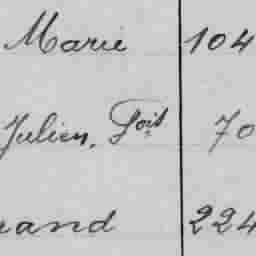 Marie 104
Julien, Foit 70
rand 224